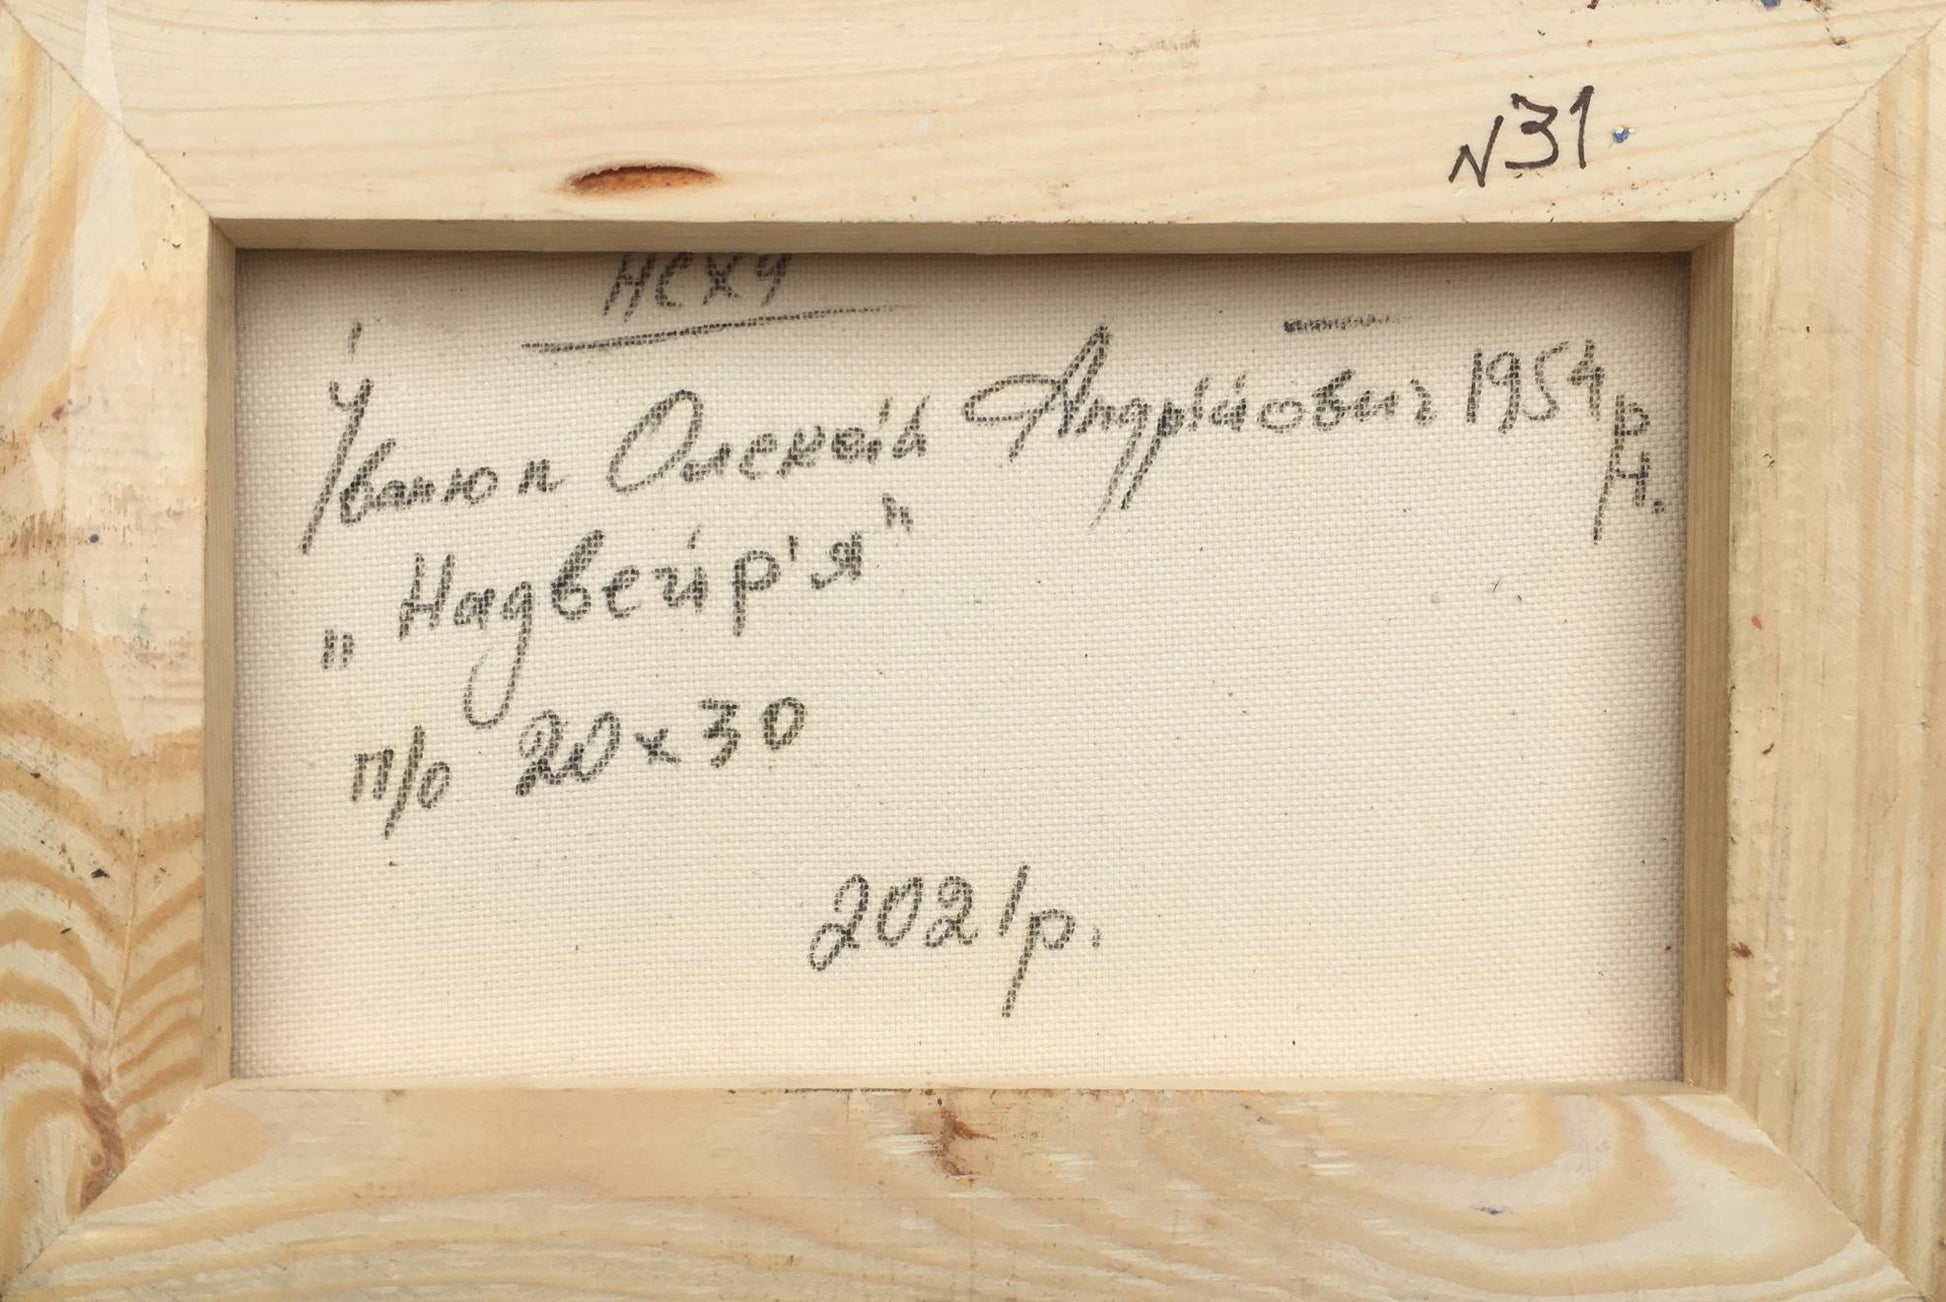 N31.
НСХУ
Іванюк Олексій Андрійович 1954 р.н.
„Надвейр'я"
п/о 20х30
2021р.